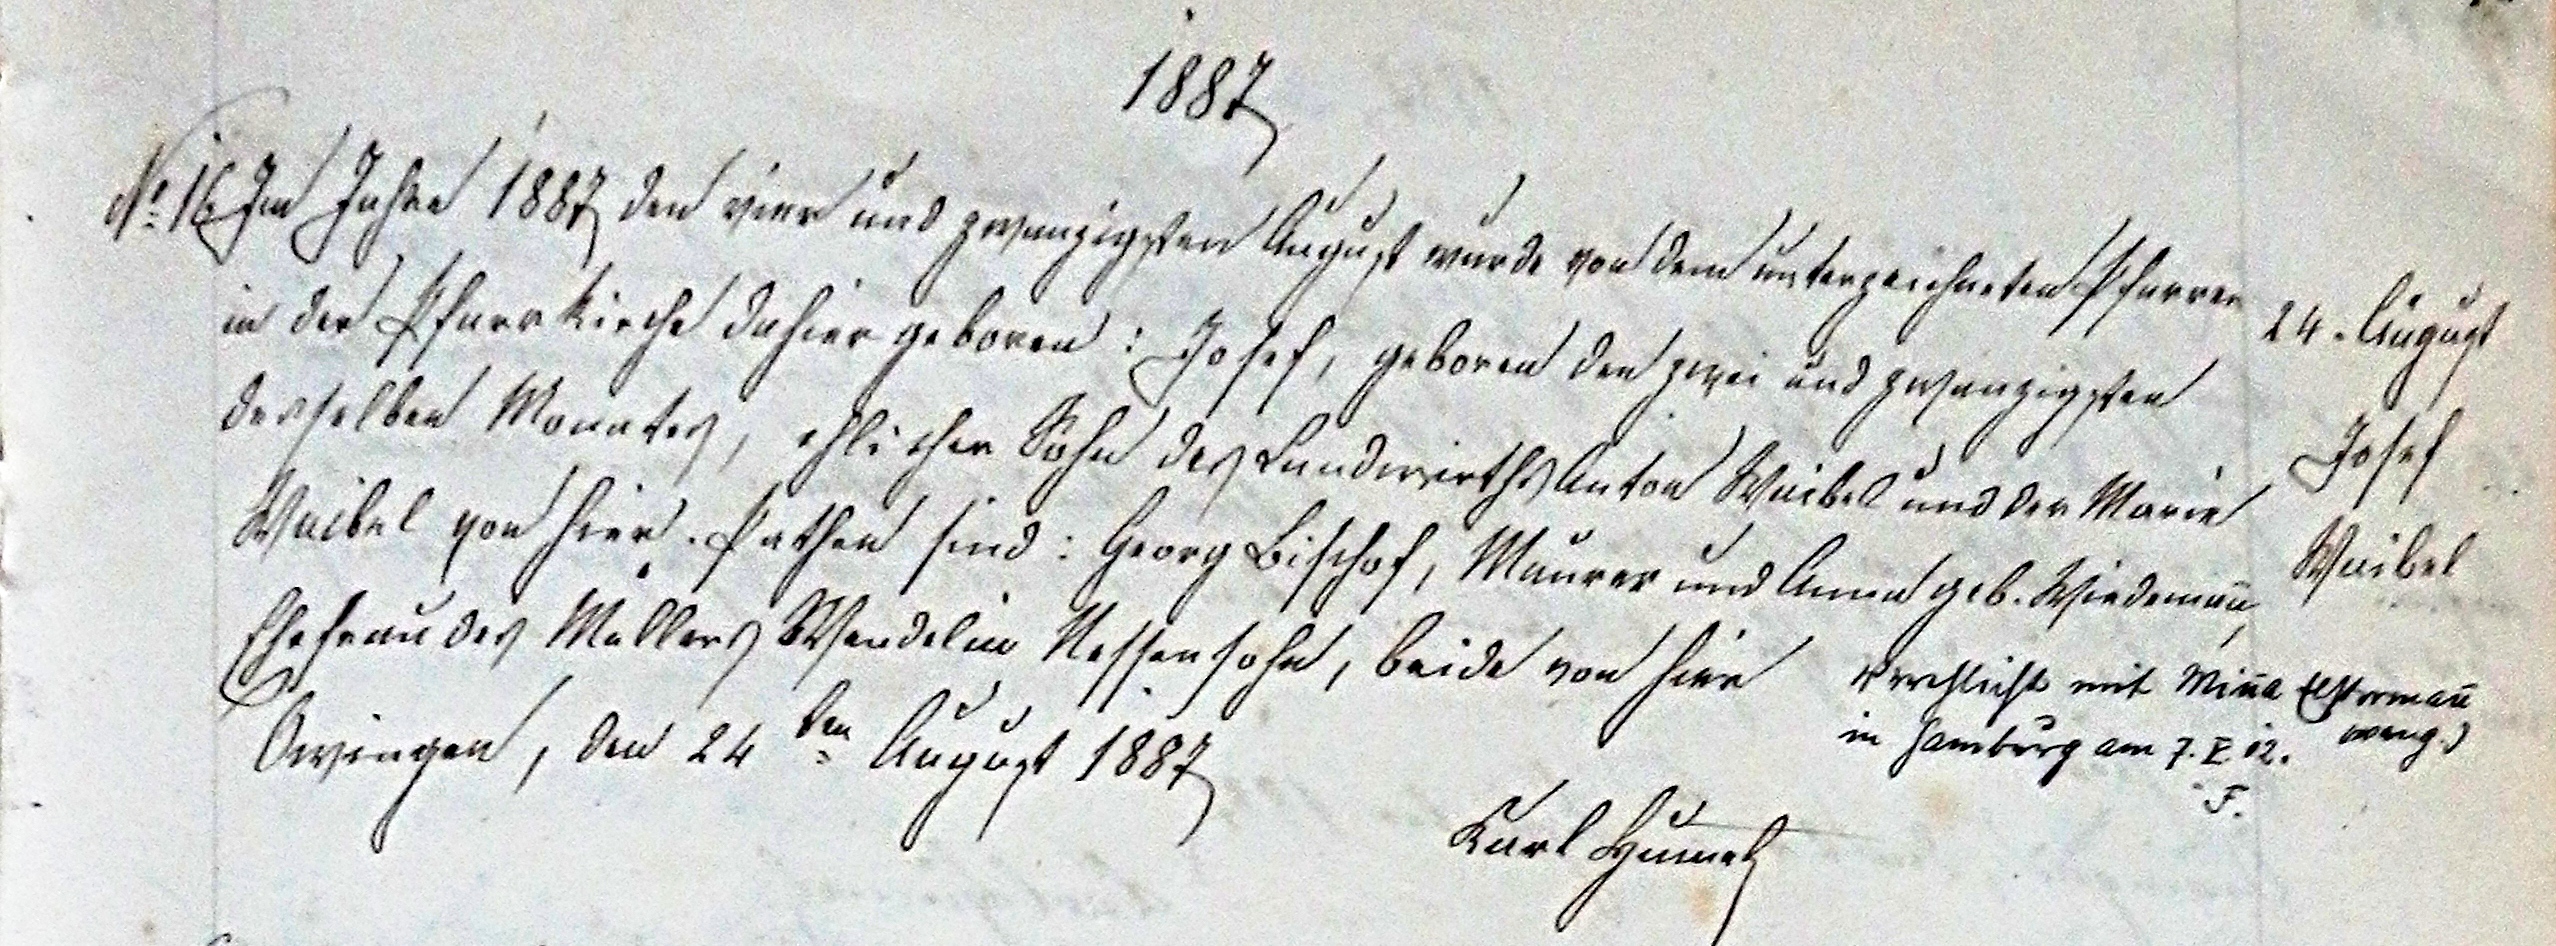 1887
No. 16 Im Jahre 1887 den vier und zwanzigsten August wurde von dem unterzeichneten Pfarrer
in der Pfarrkirche dahier geboren: Josef, geboren den zwei und zwanzigsten
24. August
desselben Monates, ehlicher Sohn des Landwirths Anton Waibel und der Marie
Josef
Waibel von hier. Pathen sind: Georg Bischof, Maurer und Anna geb. Wiedemann,
Waibel
Ehefrau des Müllers Wendelin Nessensohn, beide von hier
Verehlicht mit Minna
in Hamburg am 7. X. 12.
F.
Owingen, den 24ten August 1887
Karl